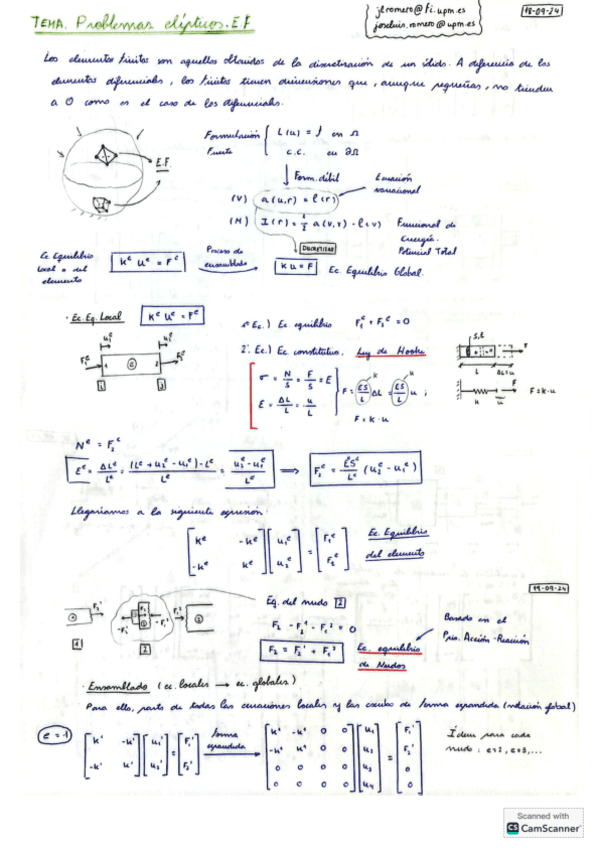 TEMA. Problemas elípticos. E.F
jlromero@fi.upm.es
joseluis.romero@upm.es
18-09-24
Los elementos finitos son aquellos obtenidos de la discretización de un sólido. A diferencia de los
elementos diferenciales, los finitos tienen dimensiones que, aunque pequeñas, no tienden
a 0 como es el caso de los diferenciales.
E.F.
Formulación Fuerte { L(u) = f en Ω
c.c. en ∂Ω
Form. débil
Ecuación variacional
(V) a(u,v) = l(v)
(M) I(v) = 1/2 a(v,v) - l(v) Funcional de Energía. Potencial Total
DISCRETIZAR
Ec Equilibrio local o del elemento
K^e U^e = F^e
Proceso de ensamblado
K U = F Ec. Equilibrio Global.
· Ec. Eq. Local K^e U^e = F^e
1ª Ec.) Ec. equilibrio F1^e + F2^e = 0
2ª Ec.) Ec. constitutiva. Ley de Hooke
u1^e u2^e
F1^e 1 e 2 F2^e
1 2
σ = N/S = F/S = E
E = ΔL/L = u/L
F = ES/L ΔL = ES/L u ;
F = K·u
S, E
L ΔL = u
F
K u F F = K·u
N^e = F2^e
E^e = ΔL^e/L^e = ((L^e + u2^e - u1^e) - L^e)/L^e = (u2^e - u1^e)/L^e ⟹ F2^e = ES^e/L^e (u2^e - u1^e)
Llegaríamos a la siguiente expresión:
[K^e -K^e; -K^e K^e] [u1^e; u2^e] = [F1^e; F2^e] Ec. Equilibrio del elemento
19-09-24
Eq. del nudo 2
F2 - F2¹ - F1² = 0
F2 = F2¹ + F1² Ec. equilibrio de Nudos
Basado en el Prin. Acción-Reacción
· Ensamblado (ec. locales → ec. globales)
Para ello, parto de todas las ecuaciones locales y las escribo de forma expandida (notación global)
e = 1
[K¹ -K¹; -K¹ K¹] [u1¹; u2¹] = [F1¹; F2¹] forma expandida
[K¹ -K¹ 0 0; -K¹ K¹ 0 0; 0 0 0 0; 0 0 0 0] [u1; u2; u3; u4] = [F1¹; F2¹; 0; 0]
Ídem para cada nudo: e=2, e=3,...
Scanned with
CS CamScanner